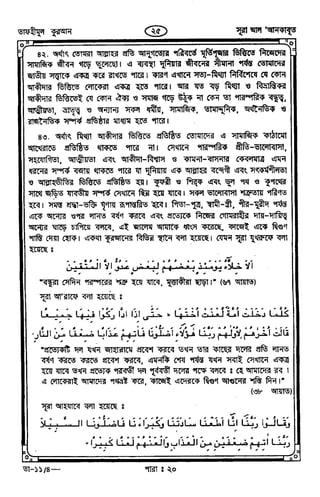 তাফহীমুল কুরআন
২৫
সূরা আল 'আনকাবূত
৪২. অর্থাৎ তোমরা আল্লাহর প্রতি আনুগত্যের পরিবর্তে মূর্তিপূজার ভিত্তিতে নিজেদের
সামাজিক জীবন গড়ে তুলেছো। এ ব্যবস্থা দুনিয়ার জীবনের সীমানা পর্যন্ত তোমাদের
জাতীয় সত্তাকে একত্র করে রাখতে পারে। কারণ এখানে সত্য-মিথ্যা নির্বিশেষে যে কোন
আকীদার ভিত্তিতে লোকেরা একত্র হতে পারে। আর যত বড় মিথ্যা ও বিভ্রান্তিকর
আকীদার ভিত্তিতেই যে কোন ঐক্য ও সমাজ গড়ে উঠুক না কেন তা পারস্পরিক বন্ধুত্ব,
আত্মীয়তা, ভ্রাতৃত্ব ও অন্যান্য সকল ধর্মীয়, সামাজিক, তামাদ্দুনিক, অর্থনৈতিক ও
রাজনৈতিক সম্পর্ক প্রতিষ্ঠার মাধ্যম হতে পারে।
৪৩. অর্থাৎ মিথ্যা আকীদার ভিত্তিতে প্রতিষ্ঠিত তোমাদের এ সামাজিক কাঠামো
আখেরাতে প্রতিষ্ঠিত থাকতে পারে না। সেখানে পারস্পরিক প্রীতি-ভালোবাসা,
সহযোগিতা, আত্মীয়তা এবং আকীদা-বিশ্বাস ও কামনা-বাসনার কেবলমাত্র এমন
ধরনের সম্পর্ক বজায় থাকতে পারে যা দুনিয়ায় এক আল্লাহর বন্দেগী এবং সৎকর্মশীলতা
ও আল্লাহভীতির ভিত্তিতে প্রতিষ্ঠিত হয়। কুফরী ও শিরক এবং ভুল পথ ও কুপথের
সাথে জড়িত যাবতীয় সম্পর্ক সেখানে ছিন্ন হয়ে যাবে। সকল ভালোবাসা শত্রুতায় পরিণত
হবে। সমস্ত শ্রদ্ধা-ভক্তি ঘৃণায় রূপান্তরিত হবে। পিতা-পুত্র, স্বামী-স্ত্রী, পীর-মুরীদ পর্যন্ত
একে অন্যের ওপর লানত বর্ষণ করবে এবং প্রত্যেকে নিজের গোমরাহীর দায়-দায়িত্ব
অন্যের ঘাড়ে চাপিয়ে বলবে, এই জালেম আমাকে ধ্বংস করেছে, কাজেই একে দ্বিগুণ
শাস্তি দেয়া হোক। একথা কুরআনের বিভিন্ন স্থানে বলা হয়েছে। যেমন সূরা যুখরুফে বলা
হয়েছে :
اَلْاَخِلَّاءُ يَوْمَئِذٍ بَعْضُهُمْ لِبَعْضٍ عَدُوٌّ اِلَّا الْمُتَّقِيْنَ
"বন্ধুরা সেদিন পরস্পরের শত্রু হয়ে যাবে, মুত্তাকীরা ছাড়া।" (৬৭ আয়াত)
সূরা আ'রাফে বলা হয়েছে :
كُلَّمَا دَخَلَتْ اُمَّةٌ لَّعَنَتْ اُخْتَهَا ، حَتّٰى اِذَا ادَّارَكُوْا فِيْهَا جَمِيْعًا
قَالَتْ اُخْرٰهُمْ لِاُوْلٰهُمْ رَبَّنَا هٰٓؤُلَاۤءِ اَضَلُّوْنَا فَاٰتِهِمْ عَذَابًا ضِعْفًا مِّنَ النَّارِ
"প্রত্যেকটি দল যখন জাহান্নামে প্রবেশ করবে তখন তার কাছের দলের প্রতি লানত
বর্ষণ করতে করতে প্রবেশ করবে, এমনকি শেষ পর্যন্ত যখন সবাই সেখানে একত্র
হয়ে যাবে তখন প্রত্যেক পরবর্তী দল পূর্ববর্তী দলের পক্ষে বলবে : হে আমাদের রব !
এ লোকেরাই আমাদের পথভ্রষ্ট করে, কাজেই এদেরকে দ্বিগুণ আগুনের শাস্তি দিন।"
(৩৮ আয়াত)
সূরা আহযাবে বলা হয়েছে :
وَقَالُوْا رَبَّنَا اِنَّا اَطَعْنَا سَادَتَنَا وَكُبَرَاءَنَا فَاَضَلُّوْنَا السَّبِيْلَا
رَبَّنَا اٰتِهِمْ ضِعْفَيْنِ مِنَ الْعَذَابِ وَالْعَنْهُمْ لَعْنًا كَبِيْرًا
তা-১১/৪—
পারা : ২০